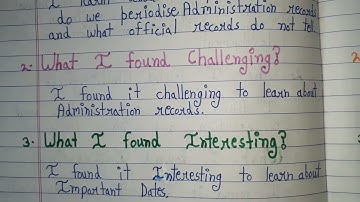 do we periodise Administration records
and what official records do not tell.
2. What I found Challenging?
I found it challenging to learn about
Administration records.
3. What I found Interesting?
I found it Interesting to learn about
Important Dates.